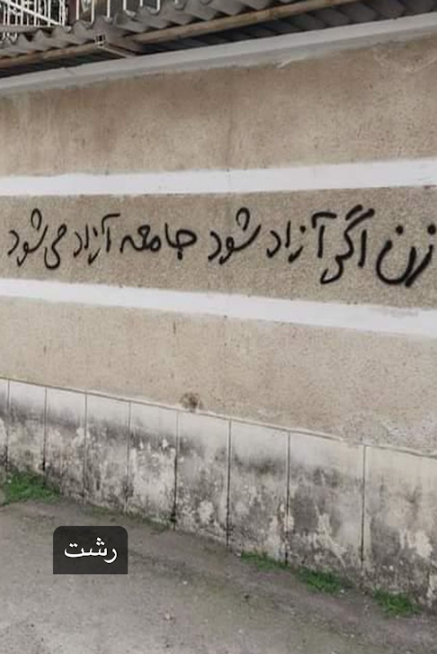 زن اگر آزاد شود جامعه آزاد می‌شود
رشت